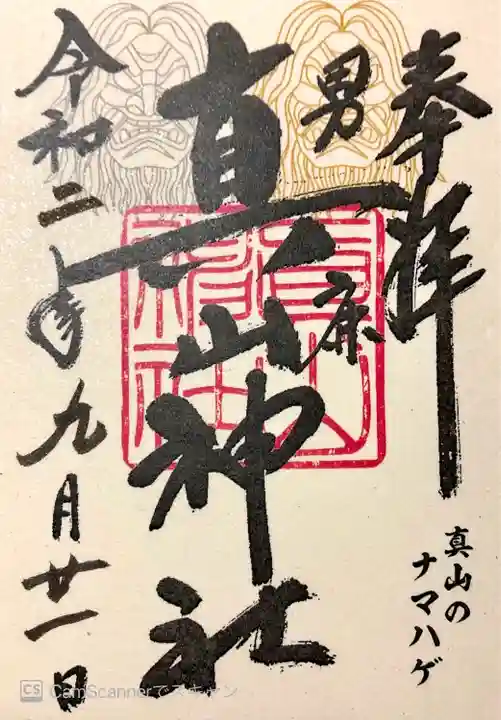 奉拝
男鹿
真山神社
令和二年九月廿一日
真山の
ナマハゲ
CS CamScannerでスキャン